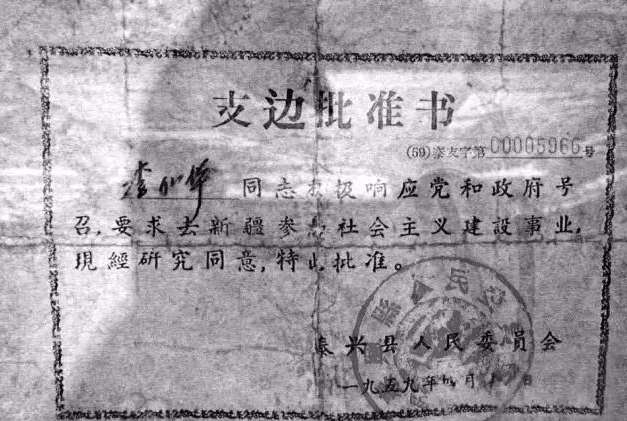 支边批准书
(59)泰支字第00005966号
同志积极响应党和政府号
召,要求去新疆参加社会主义建設事业,
現經研究同意,特此批准。
泰兴县人民委員会
一九五九年 月 日